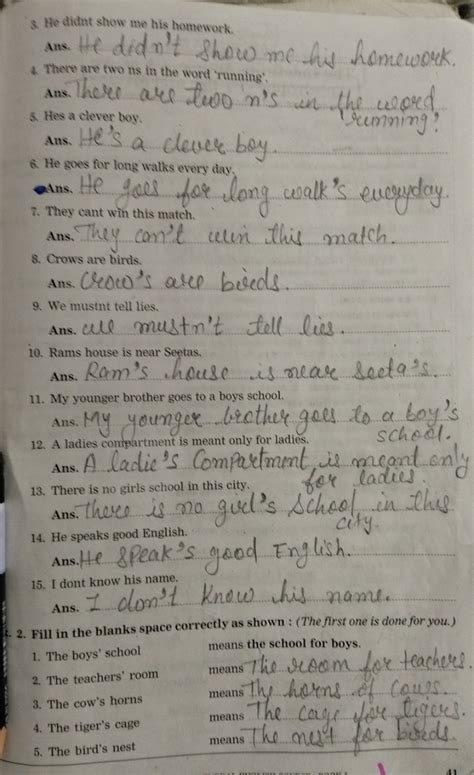 3. He didnt show me his homework.
Ans. He didn't show me his homework.
4. There are two ns in the word 'running'.
Ans. There are two n's in the word
'running'.
5. Hes a clever boy.
Ans. He's a clever boy.
6. He goes for long walks every day.
Ans. He goes for long walk's everyday.
7. They cant win this match.
Ans. They can't win this match.
8. Crows are birds.
Ans. Crow's are birds.
9. We mustnt tell lies.
Ans. We mustn't tell lies.
10. Rams house is near Seetas.
Ans. Ram's house is near Seeta's.
11. My younger brother goes to a boys school.
Ans. My younger brother goes to a boy's
school.
12. A ladies compartment is meant only for ladies.
Ans. A ladie's Compartment is meant only
for ladies.
13. There is no girls school in this city.
Ans. There is no girl's School in this
city.
14. He speaks good English.
Ans. He speak's good English.
15. I dont know his name.
Ans. I don't know his name.
2. Fill in the blanks space correctly as shown : (The first one is done for you.)
1. The boys' school means the school for boys.
2. The teachers' room means The room for teachers.
3. The cow's horns means The horns of cows.
4. The tiger's cage means The cage for tigers.
5. The bird's nest means The nest for birds.
41